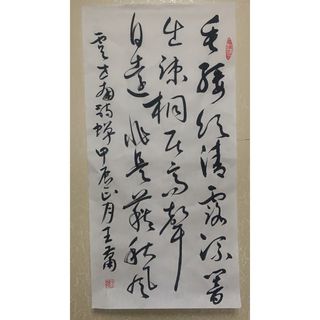 垂緌饮清露流響
出疎桐居高聲
自遠非是藉秋風
虞世南詩蟬甲辰正月王蕭